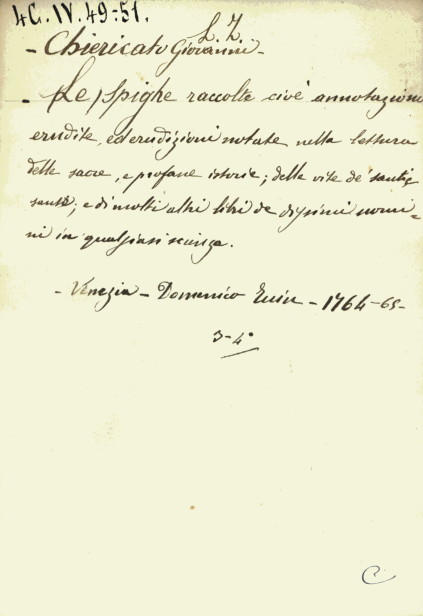 4C. IV. 49-51.
L. Z
- Chiericato Giovanni -
- Le Spighe raccolte cioè annotazioni
erudite, ed erudizioni notate nella lettura
delle sacre, e profane istorie; delle vite de'
sante; e di molti altri libri de
ni in qualsiasi scienza.
- Venezia - Domenico - 1764-65-
3-4°
C